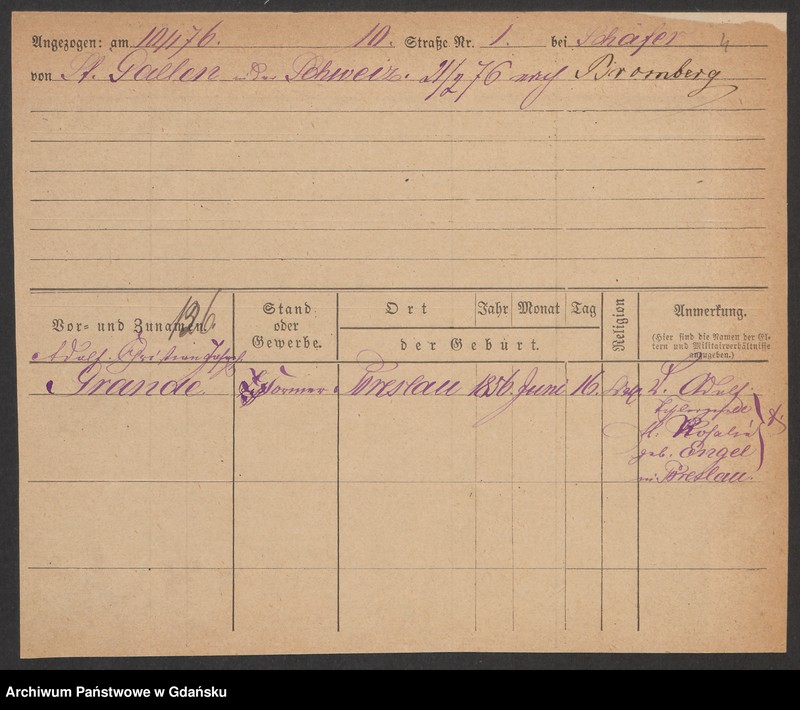 Angezogen: am 10/1 76. 10. Straße Nr. 1. bei Schäfer 4
von St. Gallen in der Schweiz. 21/2 76 nach Bromberg
136
Vor- und Zunamen.
Stand
oder
Gewerbe.
Ort
Jahr
Monat
Tag
der Geburt.
Religion
Anmerkung.
(Hier sind die Namen der El-
tern und Militairverhältnisse
anzugeben.)
Adolf Christian Joseph
Grande
Former
Breslau
1856
Juni
16.
V. Adolf
M. Rosalie
geb. Engel
in Breslau.
Archiwum Państwowe w Gdańsku